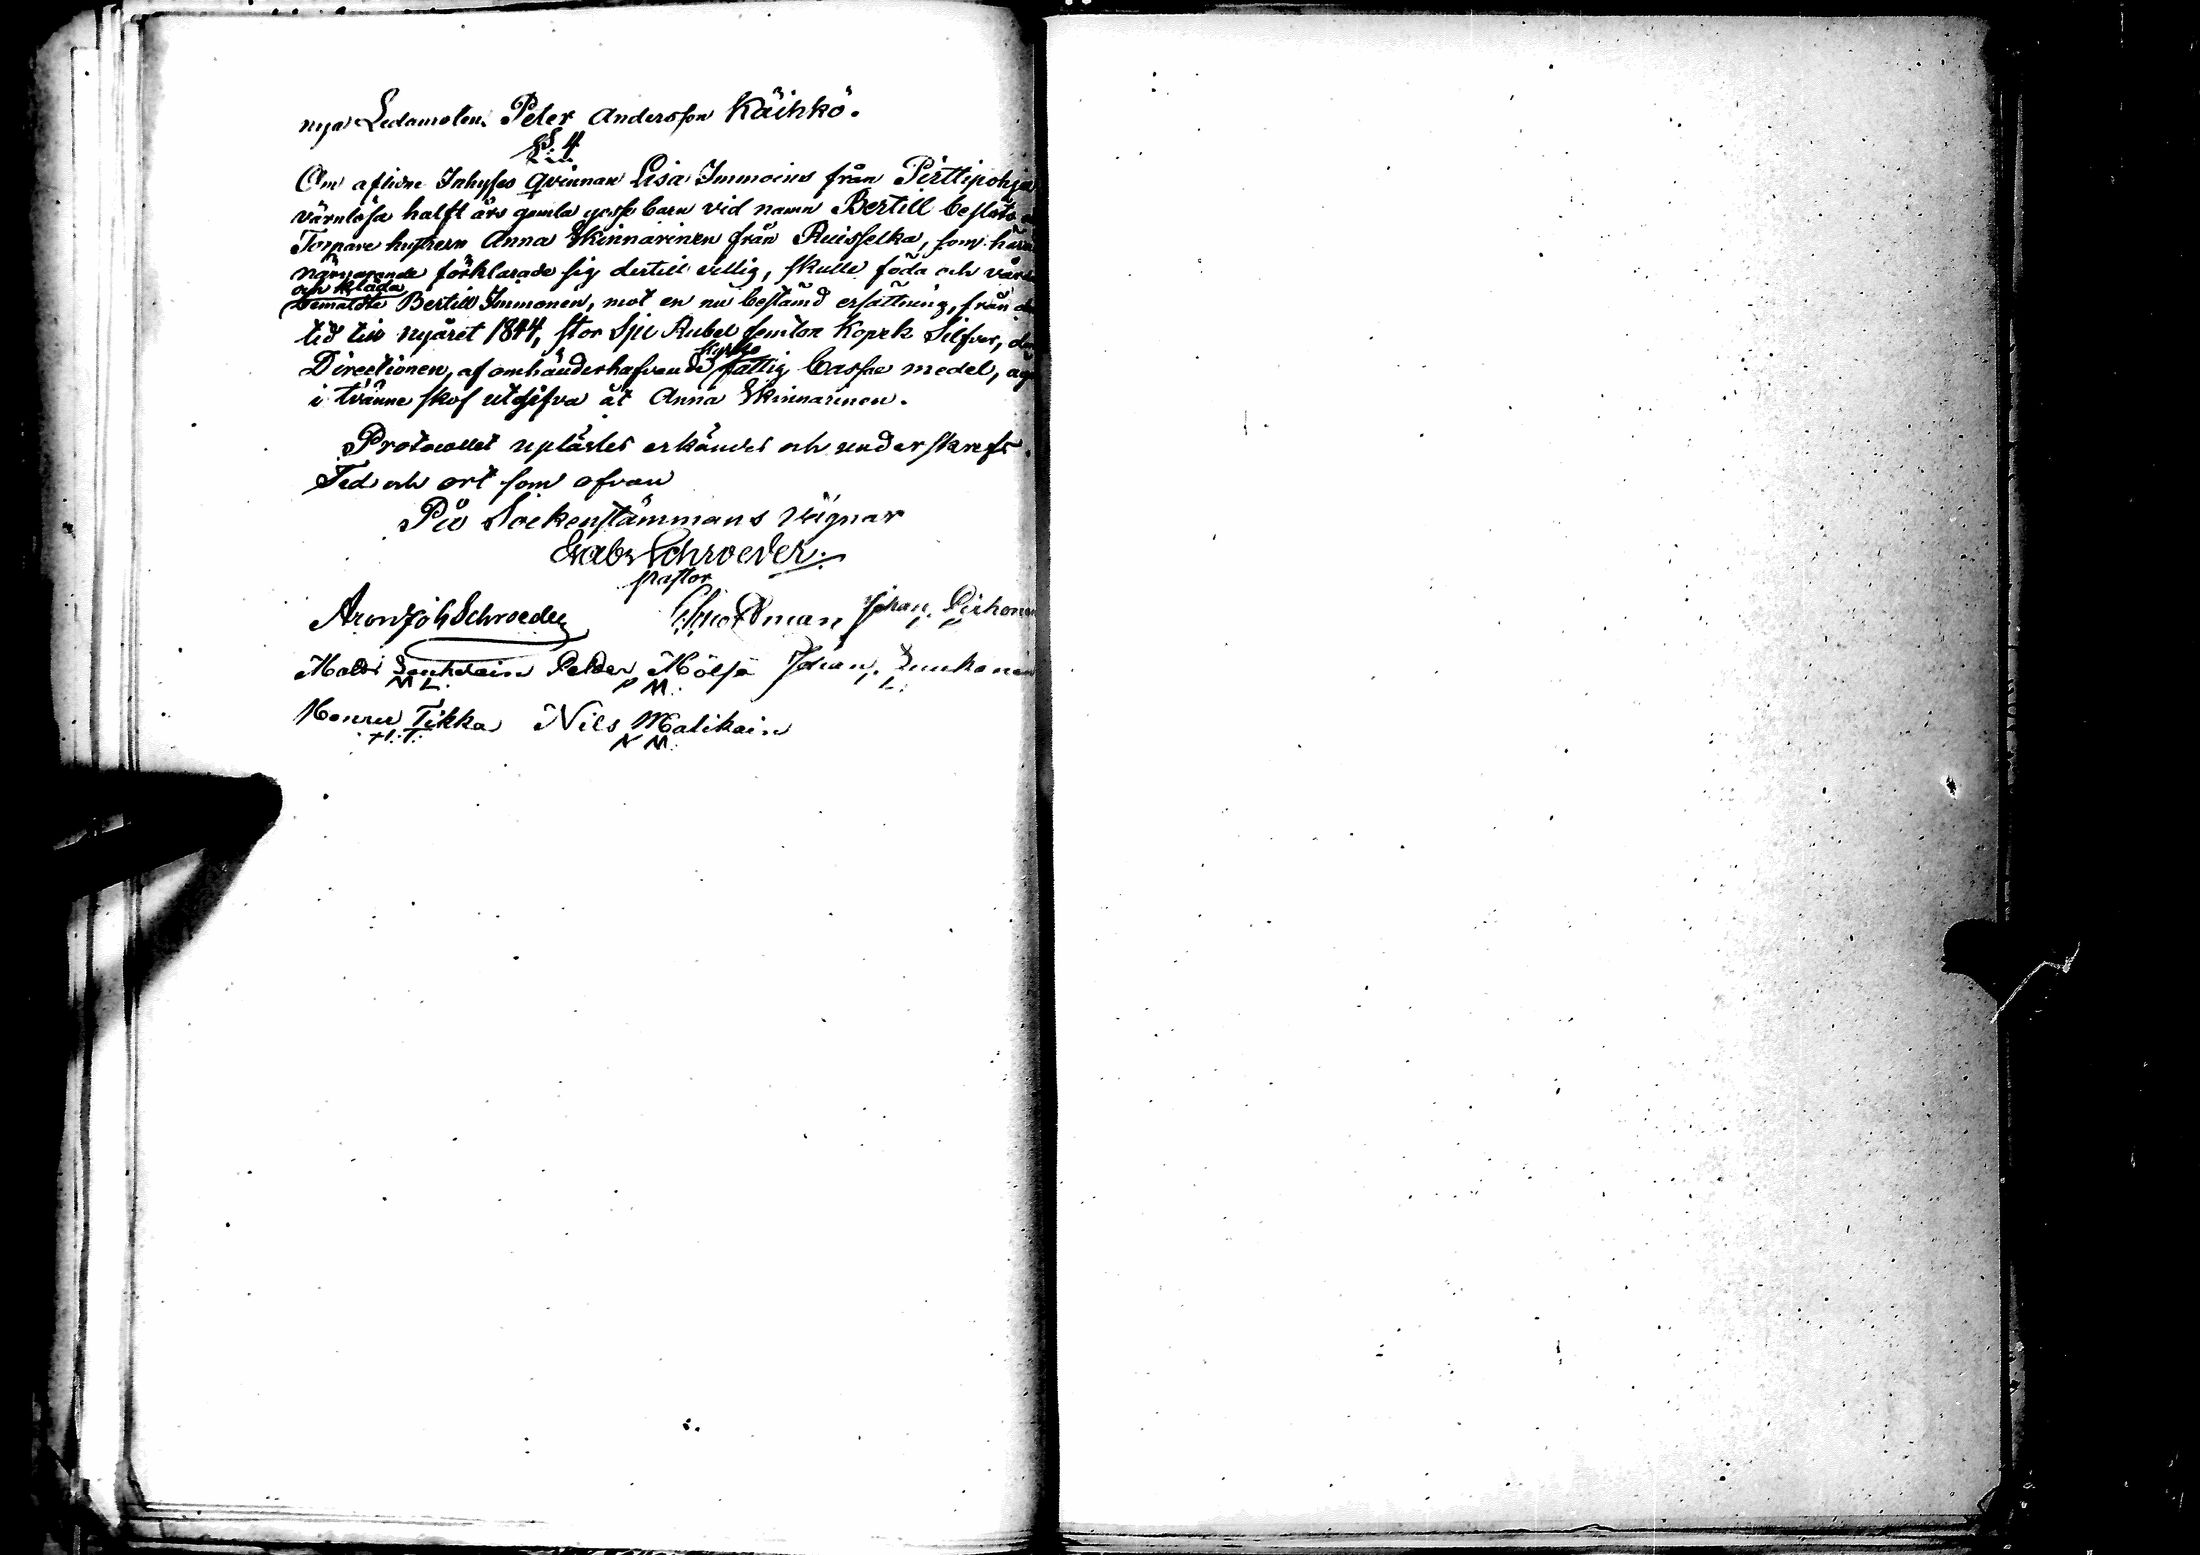 nya Ledamoten Peter Andersson Käihkö.
§. 4
Om aflidne Inhyses qvinnan Lisa Immoins från Pirttipohja
värnlösa halft års gamla gosse barn vid namn Bertill beslöts
Torpare hustrun Anna Skinnarinen från Ruisselka, som
närvarande förklarade sig dertill villig, skulle föda och vårda
och kläda
bemäldte Bertill Immonen, mot en nu bestämd ersättning, från
tid till nyåret 1844, stor Sju Rubel femton Kopek Silfver,
Directionen, af omhänderhafvande fattig Cassae medel,
i tvänne skof utgifva åt Anna Skinnarinen.
Protocollet uplästes erkändes och underskrefs.
Tid och ort som ofvan
På Sockenstämmans vägnar
Gab. Schroeder
pastor
Aron Joh Schroeder Johan Pirhonen
Matts Lenkvain Petter Mölsä Johan Luukonen
M L. P M. J. L.
Henric Tikka Nils Malikain
H. T. N M.